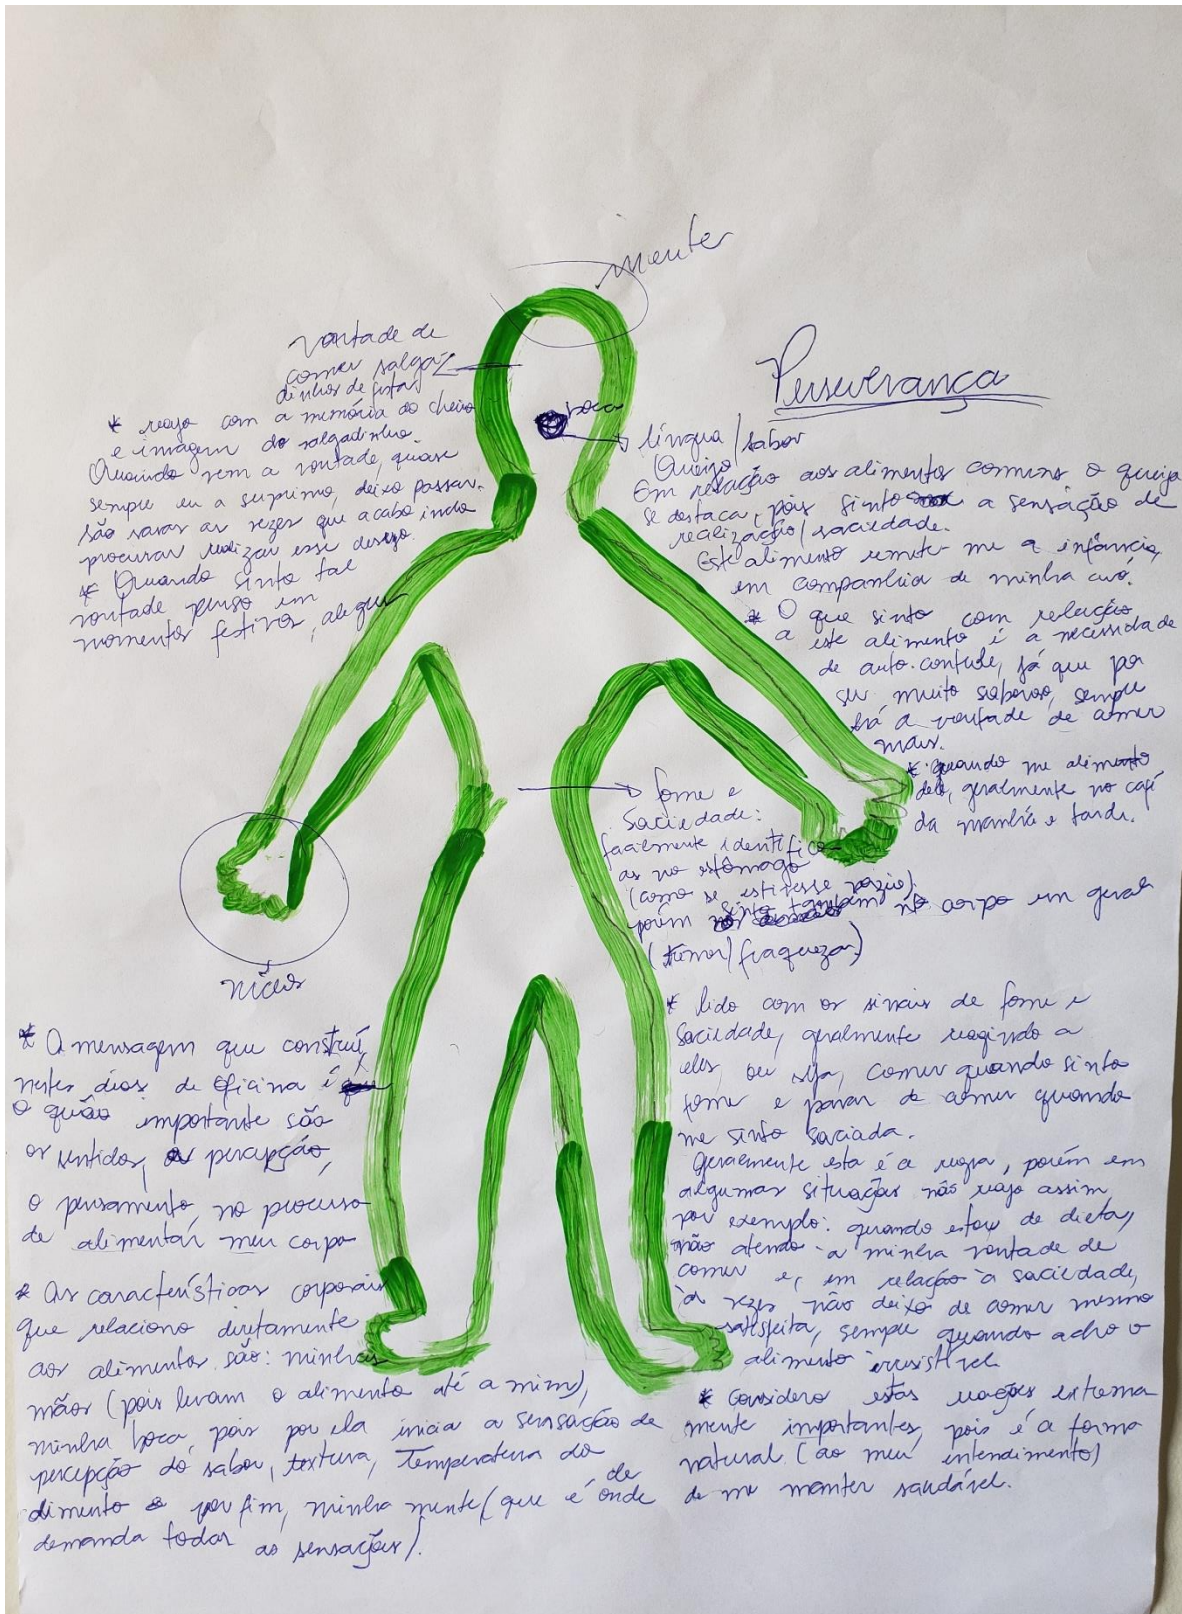 mente
Perseverança
vontade de
comer salga-
dinhos de festas
* reajo com a memória do cheiro
e imagem do salgadinho.
Quando vem a vontade, quase
sempre eu a suprimo, deixo passar.
são raras as vezes que acabo indo
procurar realizar esse desejo.
* Quando sinto tal
vontade penso em
momentos festivos, alegres
boca
língua/sabor
Queijo
Em relação aos alimentos comuns o queijo
se destaca, pois sinto a sensação de
realização/saciedade.
Este alimento remete-me a infância,
em companhia de minha avó.
* O que sinto com relação
a este alimento é a necessidade
de auto-controle, já que por
ser muito saboroso, sempre
há a vontade de comer
mais.
* quando me alimento
dele, geralmente no café
da manhã e tarde.
fome e
Saciedade:
facilmente identifico-
as no estômago
(como se estivesse vazio).
porém sinto também no corpo em geral
(tremor/fraqueza)
* lido com os sinais de fome e
Saciedade, geralmente reagindo a
eles, ou seja, comer quando sinto
fome e parar de comer quando
me sinto saciada.
Geralmente esta é a regra, porém em
algumas situações não reajo assim,
por exemplo: quando estou de dieta,
não atendo a minha vontade de
comer e, em relação à saciedade,
às vezes, não deixo de comer mesmo
satisfeita, sempre quando acho o
alimento irresistível
* Considero estas reações extrema
mente importantes, pois é a forma
natural (ao meu entendimento)
de me manter saudável.
mãos
* A mensagem que construí
nestes dias de oficina é
o quão importante são
os sentidos, a percepção,
o pensamento, no processo
de alimentar meu corpo
* As características corporais
que relaciono diretamente
aos alimentos são: minhas
mãos (pois levam o alimento até a mim),
minha boca, pois por ela inicia a sensação de
percepção do sabor, textura, temperatura do
alimento e por fim, minha mente (que é de onde
demanda todas as sensações).